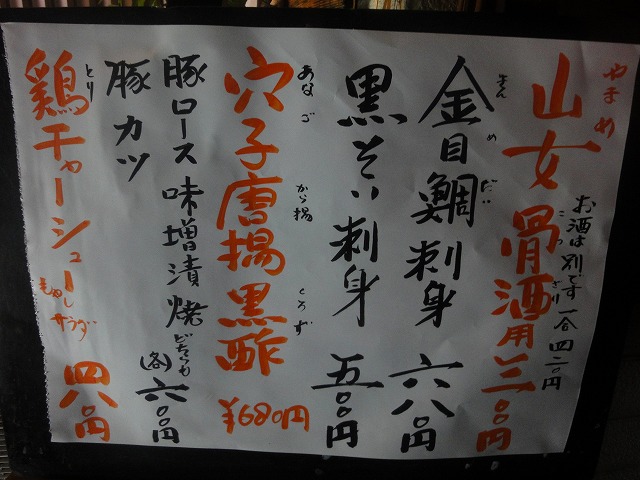 やまめ
山女骨酒用三〇〇円
こつざけ
お酒は別です一合四二〇円
きんめだい
金目鯛刺身六八〇円
黒そい刺身五〇〇円
あなご から揚 くろず
穴子唐揚黒酢¥680円
豚ロース味噌漬焼
豚カツ
どちらも
(各)六〇〇円
とり
鶏チャーシュー
もやしサラダ
四八〇円